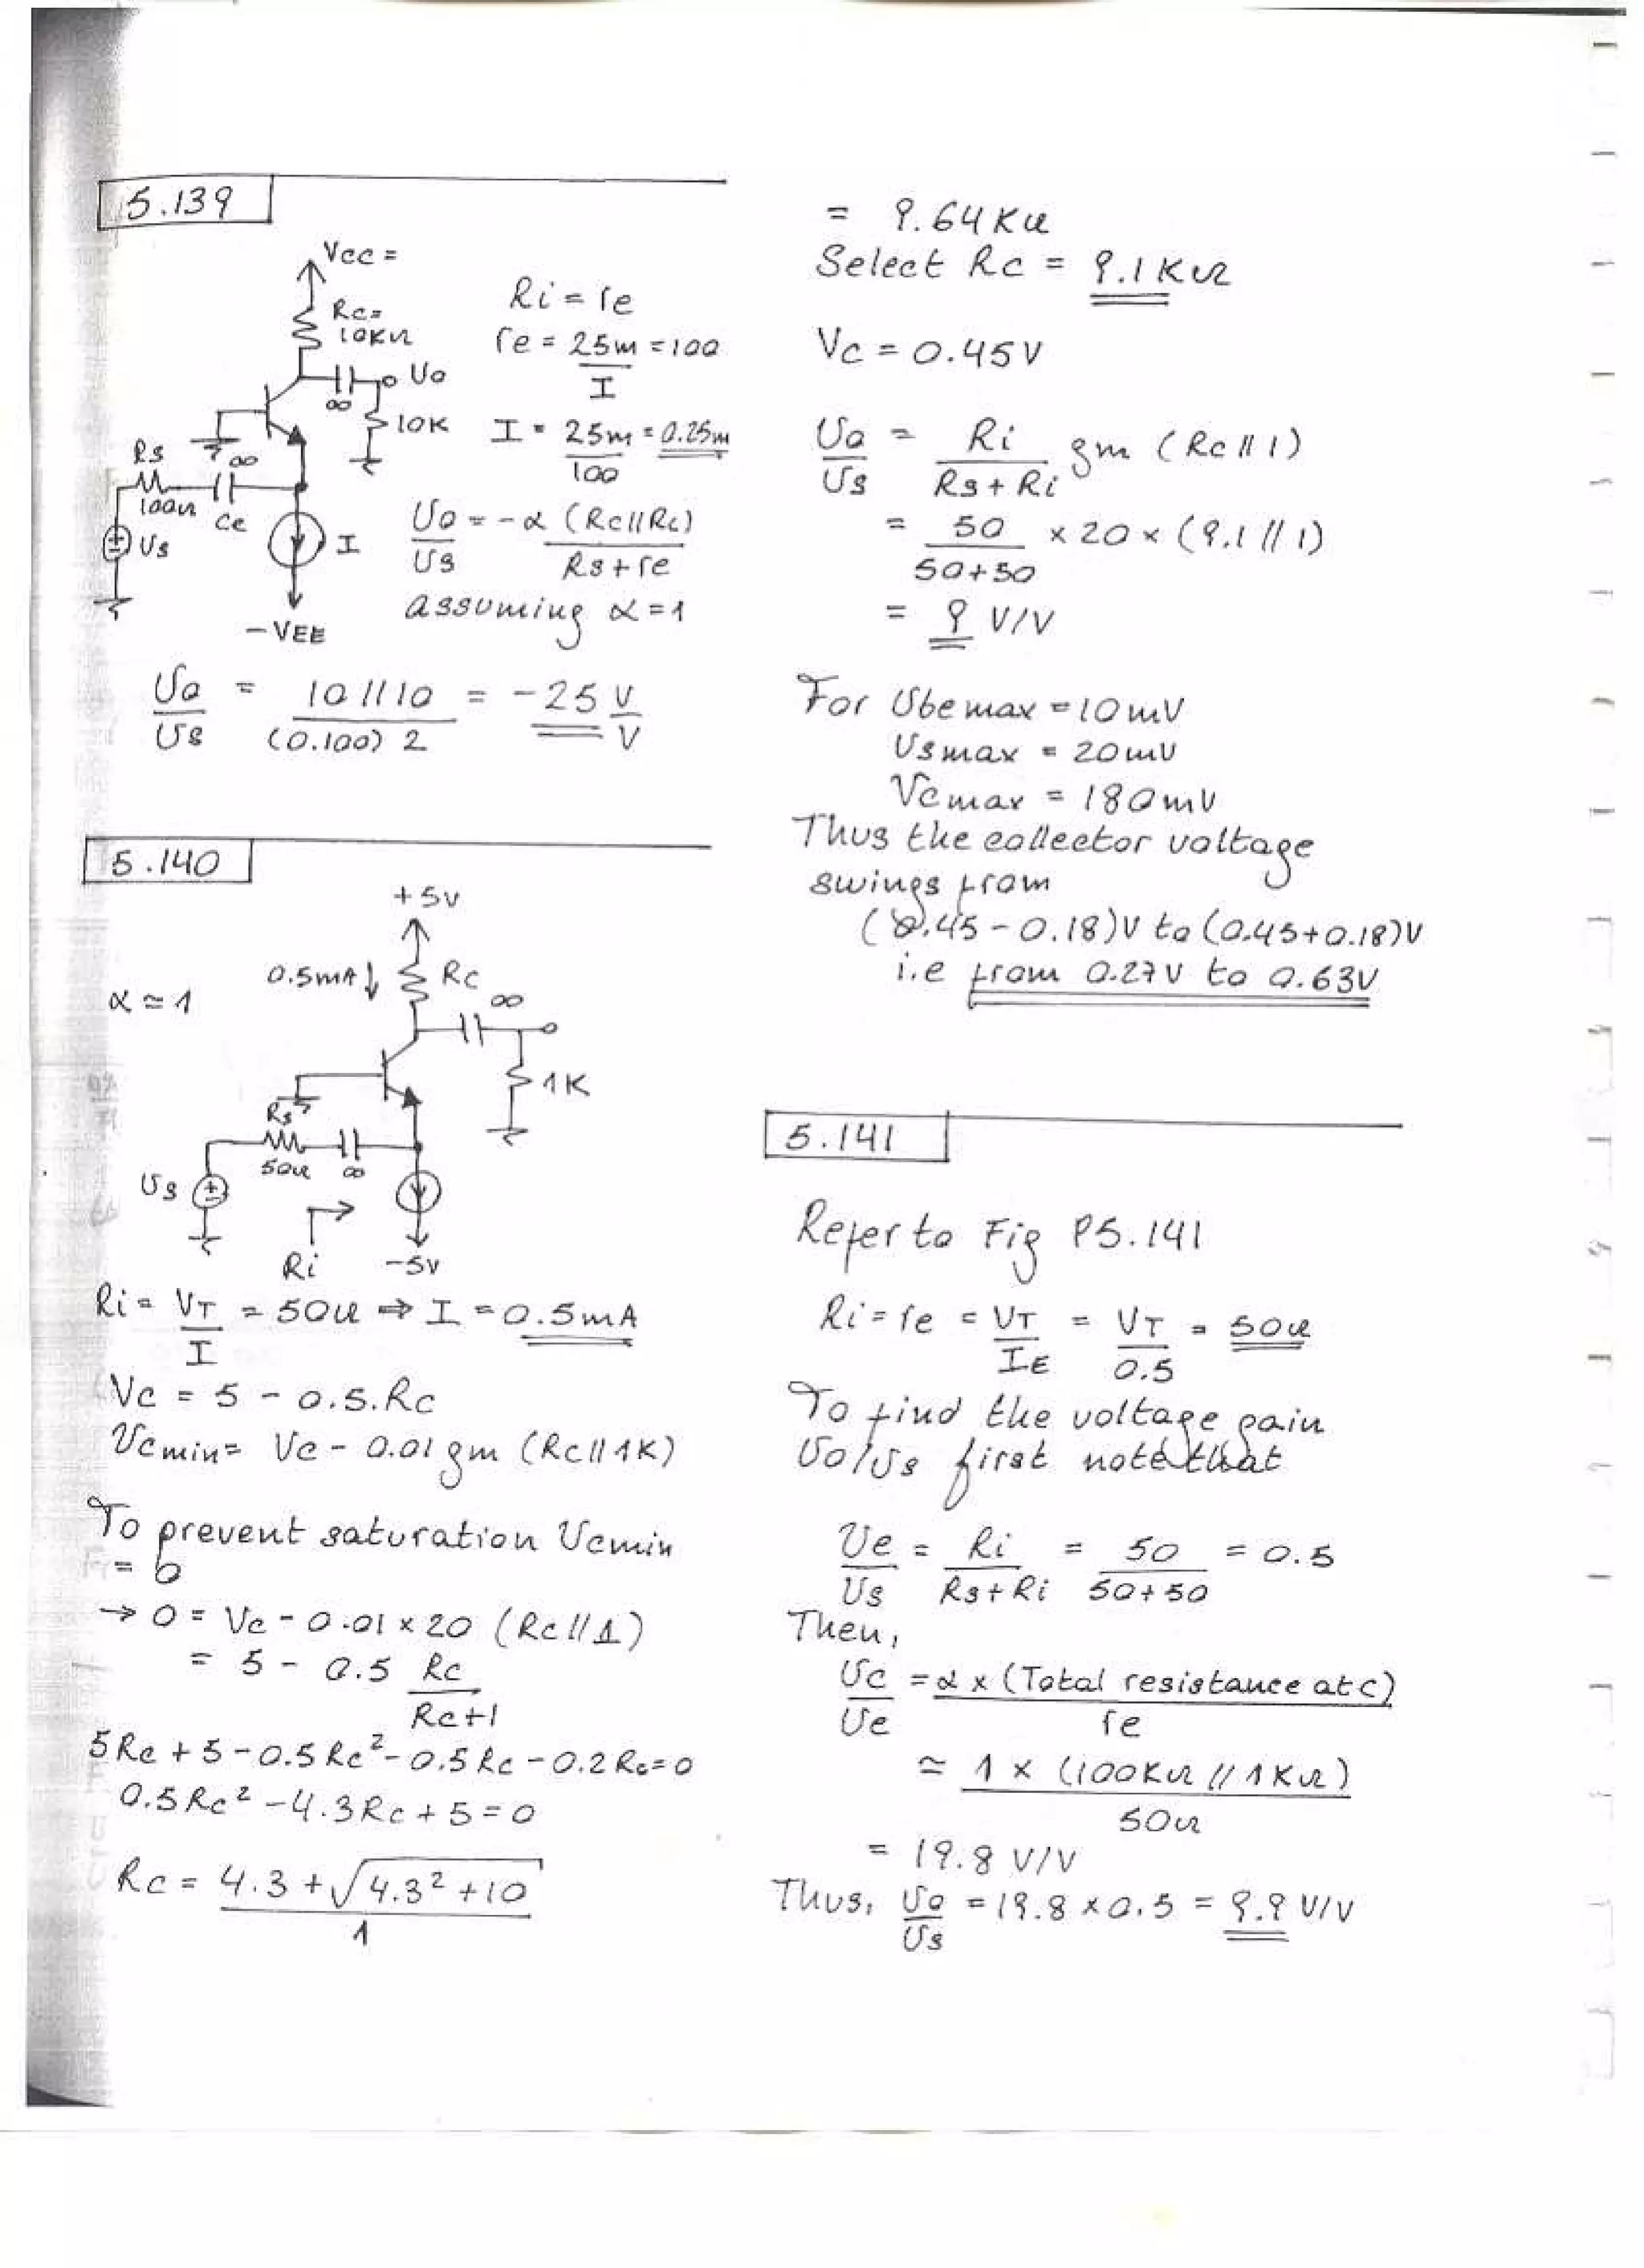 5.139
Vcc =
Rc=
10KΩ
Uo
∞
10K
Rs
∞
100Ω
Ce
Us
I
-VEE
Ri = re
re = 25m = 100
I
I = 25m = 0.25m
100
Uo = -α (Rc//RL)
Us Rs+re
assuming α=1
Uo = 10//10 = -25 V
Us (0.100) 2 V
5.140
+5v
0.5mA↓ Rc
α ≃ 1
∞
1K
Rs
50Ω ∞
Us
Ri -5v
Ri = VT = 50Ω ⇒ I = 0.5mA
I
Vc = 5 - 0.5.Rc
Ucmin= Vc - 0.01 gm (Rc//1K)
To prevent saturation Ucmin
= 0
→ 0 = Vc - 0.01 x 20 (Rc//1)
= 5 - 0.5 Rc
Rc+1
5Rc + 5 - 0.5Rc² - 0.5Rc - 0.2Rc=0
0.5Rc² - 4.3Rc + 5 = 0
Rc = 4.3 + √4.3² + 10
1
= 9.64KΩ
Select Rc = 9.1KΩ
Vc = 0.45V
Uo = Ri gm (Rc // 1)
Us Rs + Ri
= 50 x 20 x (9.1 // 1)
50+50
= 9 V/V
For Ubemax = 10mV
Usmax = 20mV
Vcmax = 180mV
Thus the collector voltage
swings from
(0.45 - 0.18)V to (0.45+0.18)V
i.e from 0.27V to 0.63V
5.141
Refer to Fig P5.141
Ri = re = VT = VT = 50Ω
IE 0.5
To find the voltage gain
Uo/Us first note that
Ue = Ri = 50 = 0.5
Us Rs + Ri 50+50
Then,
Uc = α x (Total resistance at c)
Ue re
≃ 1 x (100KΩ // 1KΩ)
50Ω
= 19.8 V/V
Thus, Uo = 19.8 x 0.5 = 9.9 V/V
Us